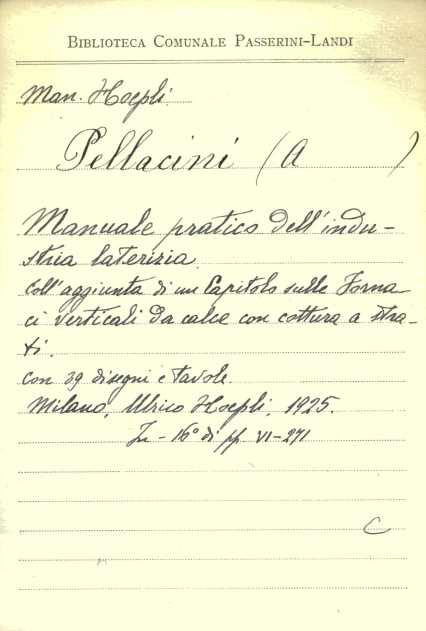 BIBLIOTECA COMUNALE PASSERINI-LANDI
Man. Hoepli
Pellacini (A )
Manuale pratico dell'indu-
stria laterizia.
Coll'aggiunta di un Capitolo sulle Forna-
ci verticali da calce con cottura a stra-
ti.
con 39 disegni e tavole.
Milano, Ulrico Hoepli, 1925.
In - 16° di pp. VI-271
C